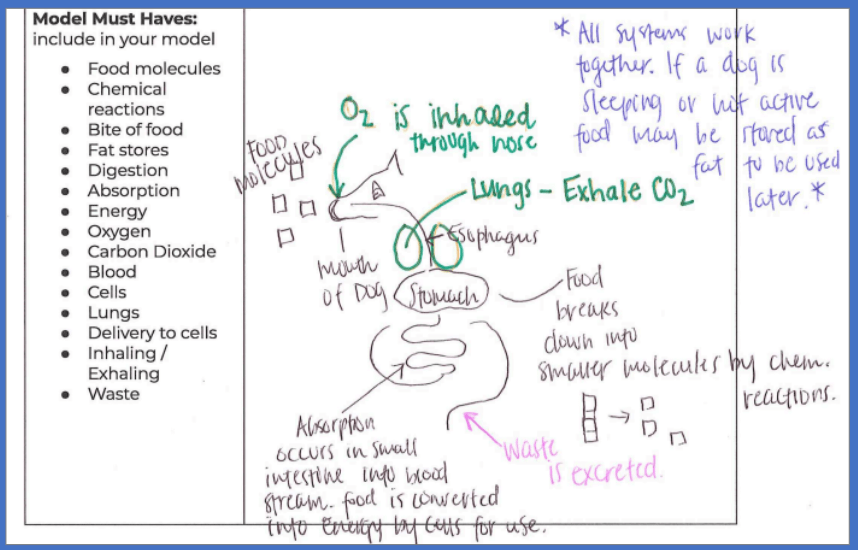 Model Must Haves:
include in your model
Food molecules
Chemical
reactions
Bite of food
Fat stores
Digestion
Absorption
Energy
Oxygen
Carbon Dioxide
Blood
Cells
Lungs
Delivery to cells
Inhaling /
Exhaling
Waste
* All systems work
together. If a dog is
sleeping or not active
food may be stored as
fat to be used
later. *
O2 is inhaled
through nose
Food
molecules
Lungs - Exhale CO2
Esophagus
mouth
of Dog
Stomach
Food
breaks
down into
smaller molecules by chem.
reactions.
Absorption
occurs in small
intestine into blood
stream. food is converted
into energy by cells for use.
Waste
is excreted.